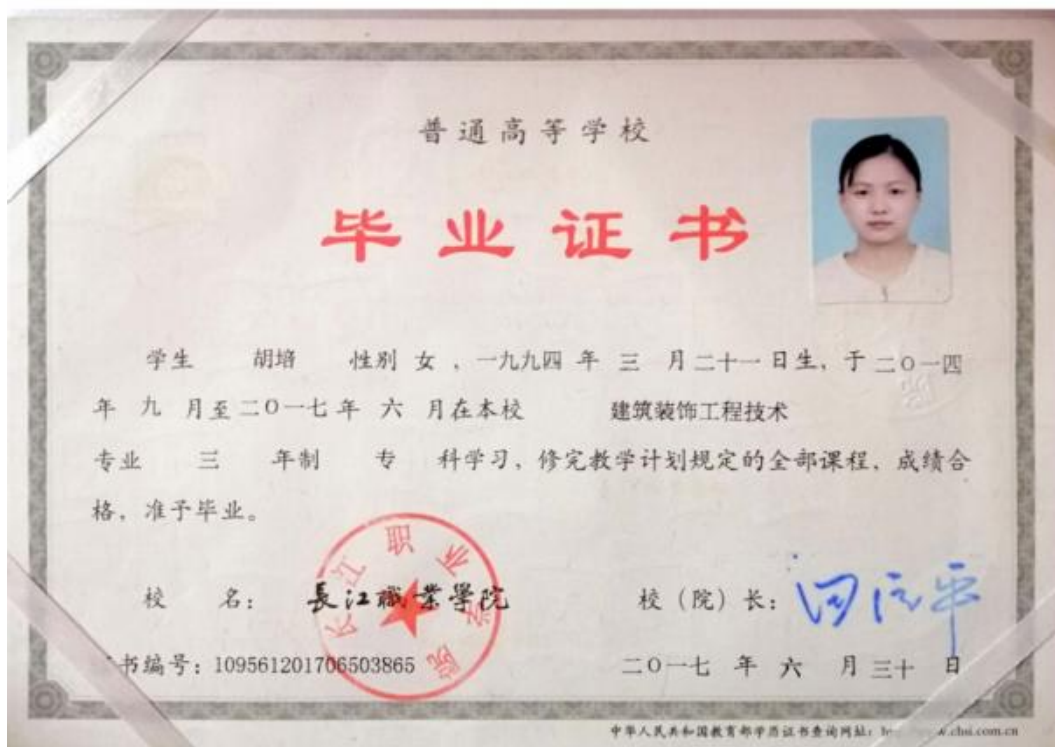 普通高等学校
毕业证书
学生 胡培 性别 女 ，一九九四 年 三 月 二十一 日生，于 二〇一四
年 九 月至 二〇一七 年 六 月在本校 建筑装饰工程技术
专业 三 年制 专 科学习，修完教学计划规定的全部课程，成绩合
格，准予毕业。
校 名： 長江職業學院
校（院）长：
书编号：109561201706503865
二〇一七 年 六 月 三十 日
长江职业学院
中华人民共和国教育部学历证书查询网址：
w.chsi.com.cn